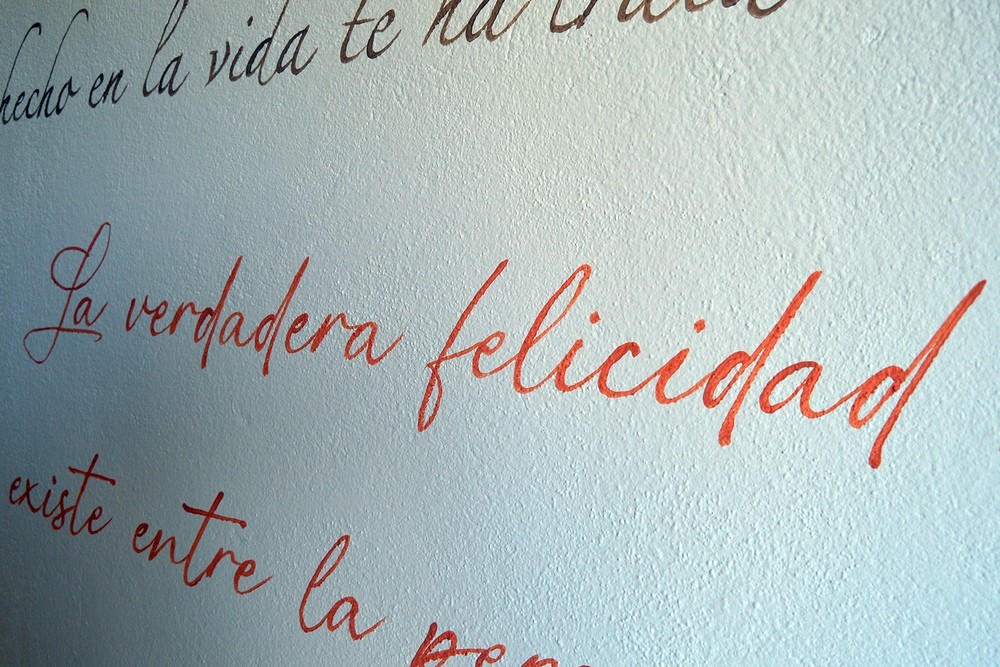 hecho en la vida te ha
La verdadera felicidad
existe entre la